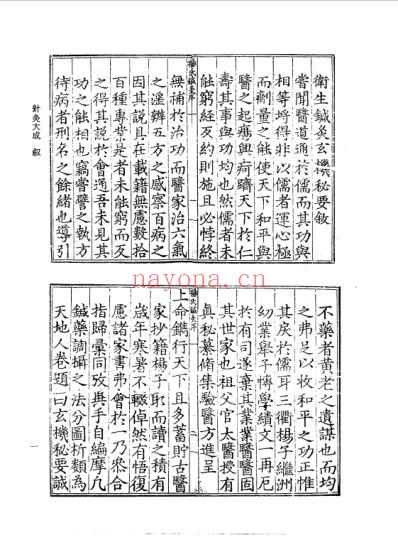 衛生鍼灸玄機秘要敘
嘗聞醫道通於儒而其功與
相等埒得非以儒者運心極
而劑量之能使天下和平與
醫之起痿興疴躋天下於仁
壽其事與功均也然儒者未
能窮經反約則施且必悖終
楊氏鍼灸序 一
無補於治功而醫家治六氣
之淫辨五方之感察百病之
因其說具在載籍無慮數拾
百種專業是者未能窮而反
之得其說於會通吾未見其
功之能相也竊嘗譬之執方
待病者刑名之餘緒也導引
不藥者黃老之遺謀也而均
之弗足以收和平之功正惟
其戾於儒耳三衢楊子繼洲
幼業舉子博學績文一再厄
於有司遂棄其業業醫醫固
其世家也祖父官太醫授有
真秘纂修集驗醫方進呈
楊氏鍼灸序
上命鐫行天下且多蓄貯古醫
家抄籍楊子取而讀之積有
歲年寒暑不輟倬然有悟復
慮諸家書弗會於一乃參合
指歸彙同攷異手自編摩凡
鍼藥調攝之法分圖析類為
天地人卷題曰玄機秘要誠
針灸大成 敘
一
nayona.cn